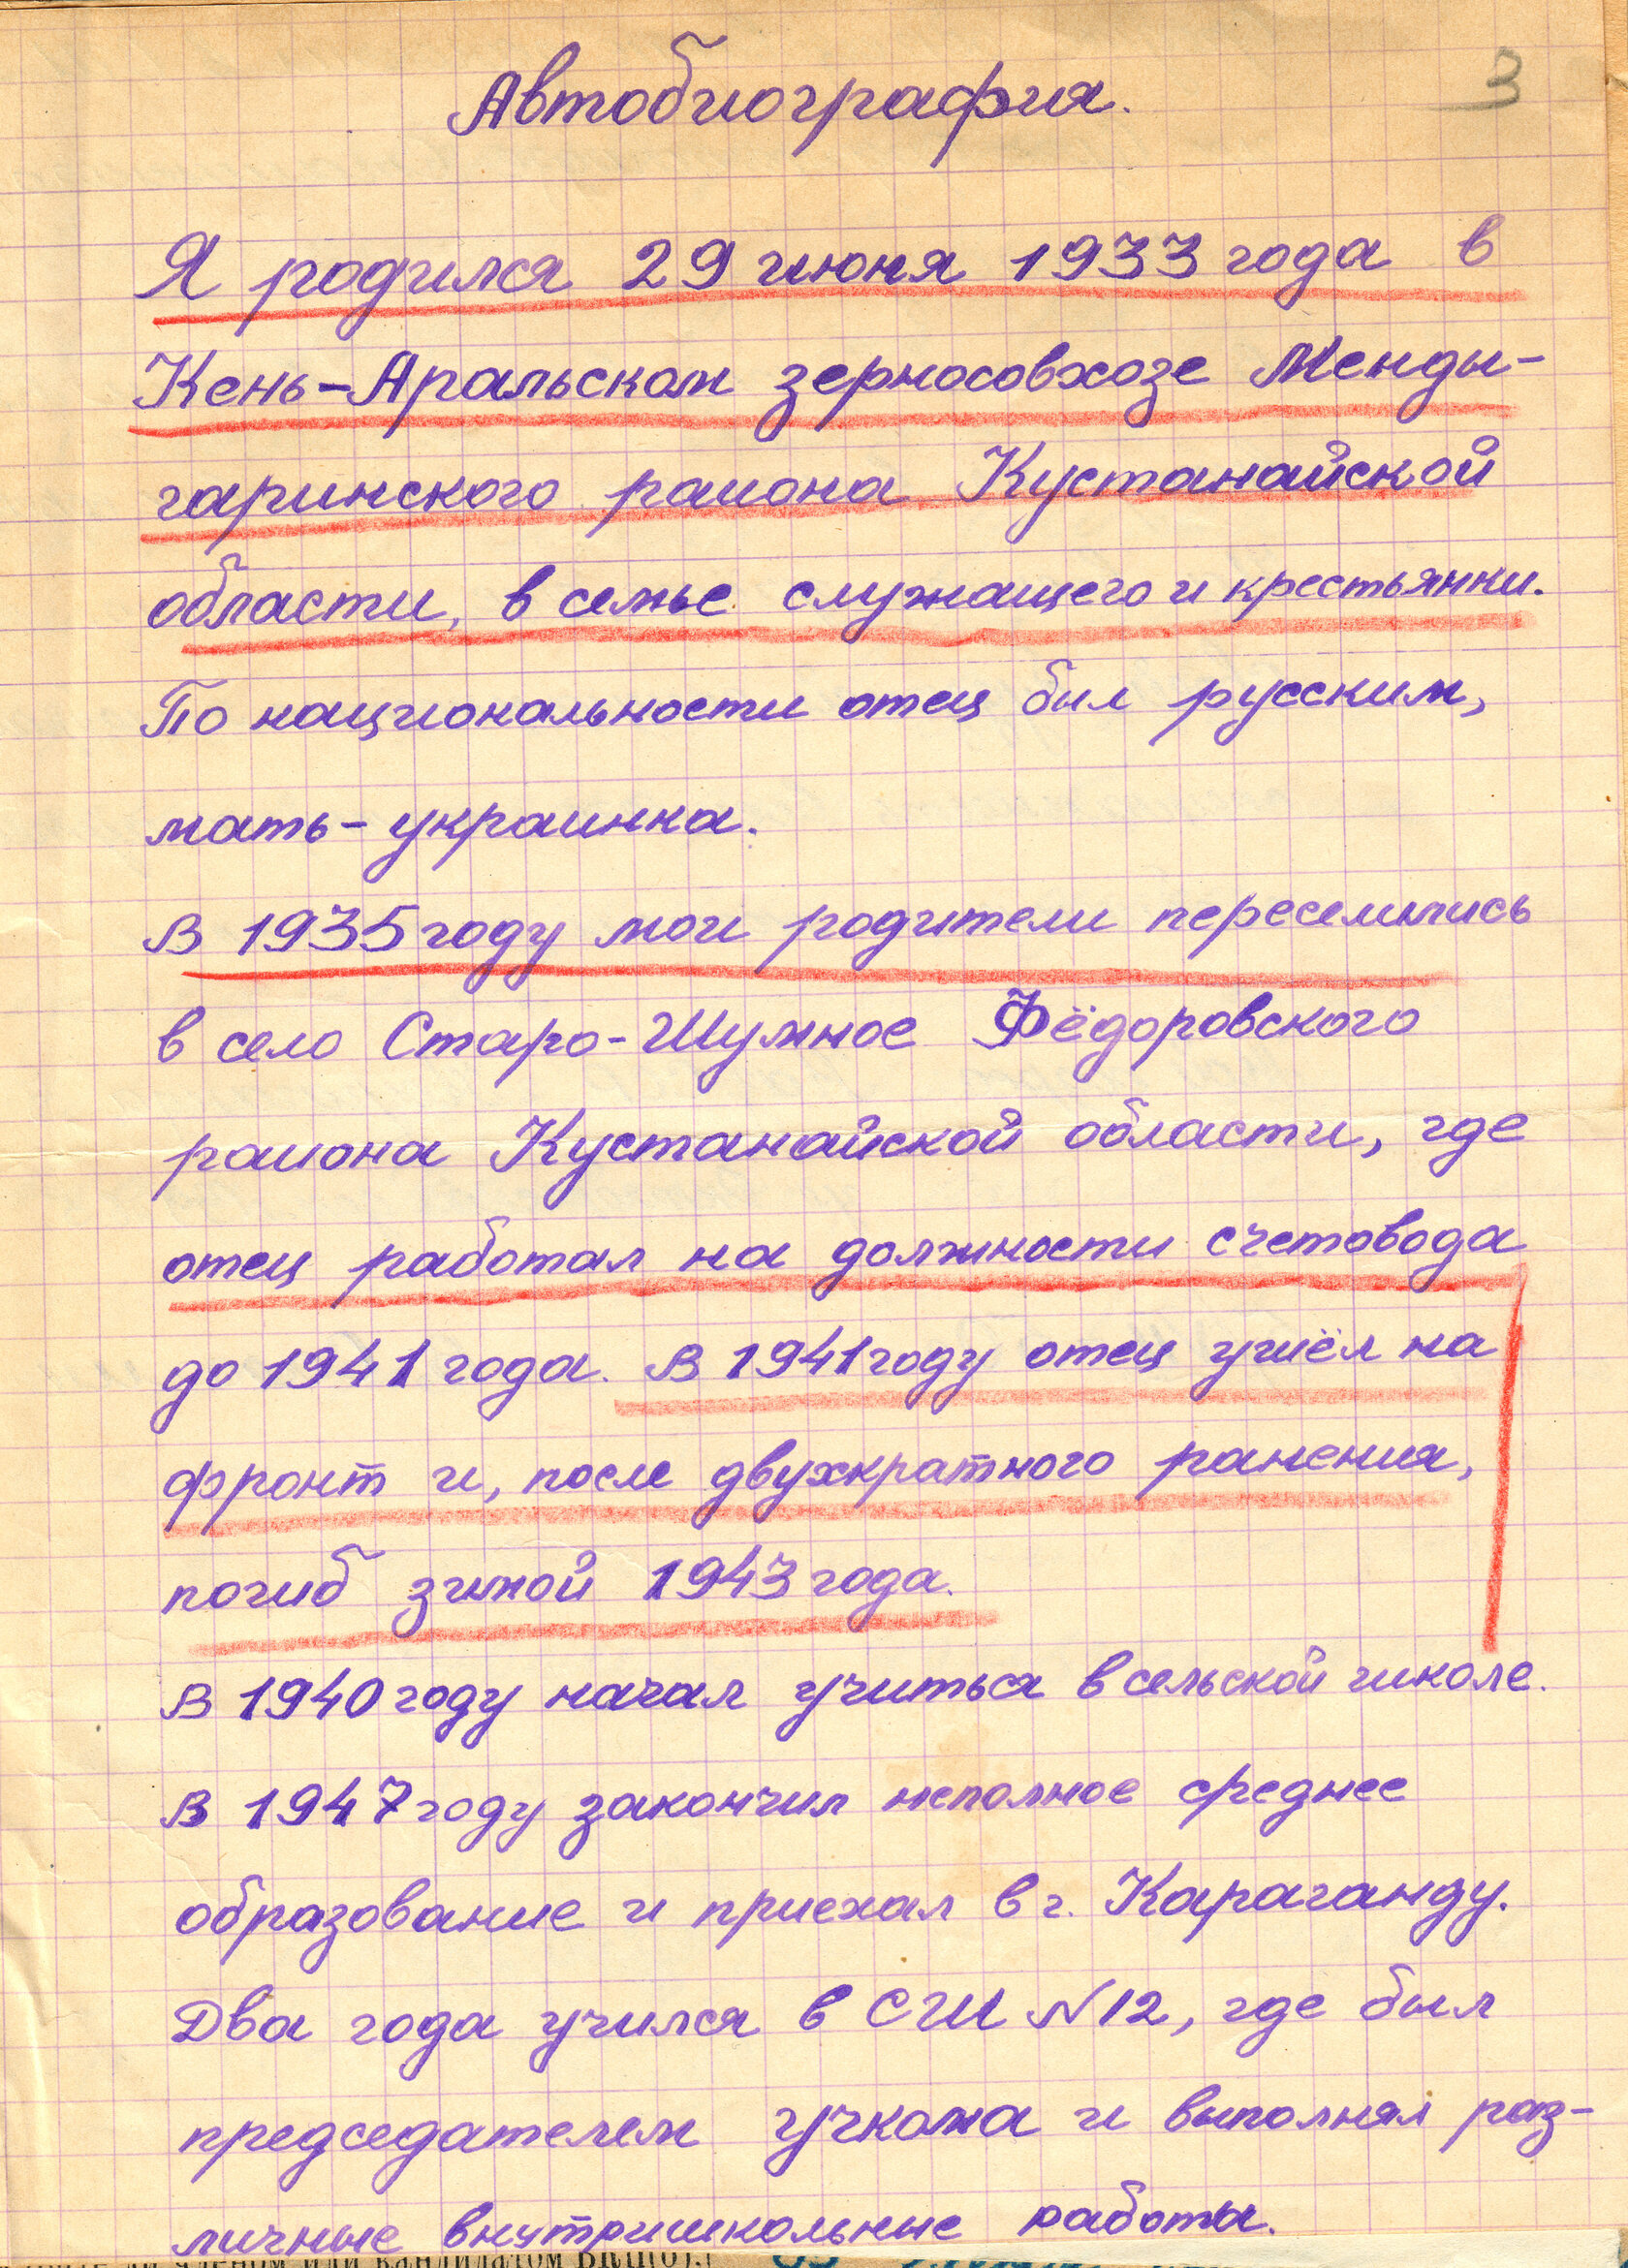 3
Автобиография.
Я родился 29 июня 1933 года в
Кень-Аральском зерносовхозе Менды-
гаринского района Кустанайской
области, в семье служащего и крестьянки.
По национальности отец был русским,
мать - украинка.
В 1935 году мои родители переселились
в село Старо-Шумное Фёдоровского
района Кустанайской области, где
отец работал на должности счетовода
до 1941 года. В 1941 году отец ушёл на
фронт и, после двухкратного ранения,
погиб зимой 1943 года.
В 1940 году начал учиться в сельской школе.
В 1947 году закончил неполное среднее
образование и приехал в г. Караганду.
Два года учился в СШ N12, где был
председателем учкома и выполнял раз-
личные внутришкольные работы.
членом или кандидатом ВКП(б)